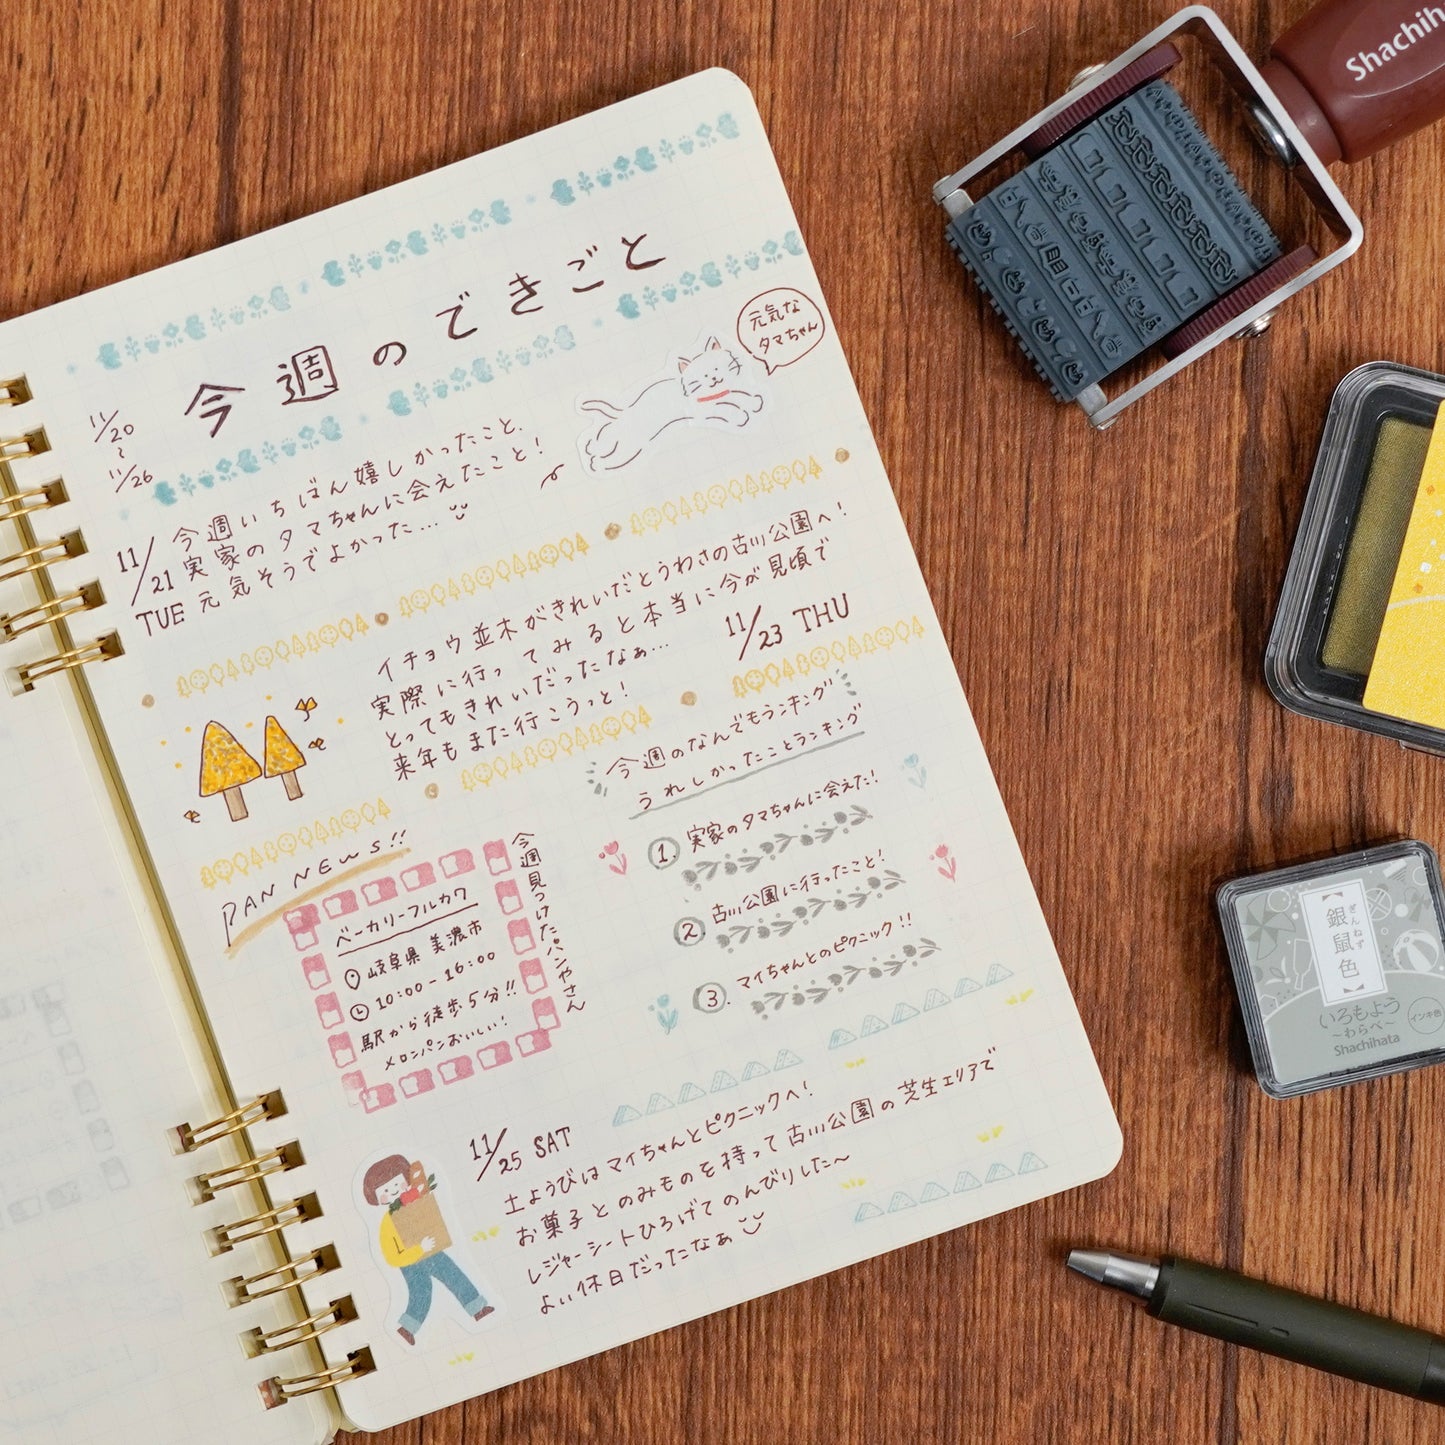 今週のできごと
11/20
〜
11/26
元気な
タマちゃん
11/21
TUE
今週いちばん嬉しかったこと、
実家のタマちゃんに会えたこと！
元気そうでよかった…
イチョウ並木がきれいだとうわさの古川公園へ！
実際に行ってみると本当に今が見頃で
とってもきれいだったなぁ…
来年もまた行こうっと！
11/23 THU
PAN NEWS!!
ベーカリーフルカワ
岐阜県 美濃市
10:00-16:00
駅から徒歩5分!!
メロンパンおいしい！
今週見つけたパンやさん
今週のなんでもランキング
うれしかったことランキング
1. 実家のタマちゃんに会えた！
2. 古川公園に行ったこと！
3. マイちゃんとのピクニック!!
11/25 SAT
土ようびはマイちゃんとピクニックへ！
お菓子とのみものを持って古川公園の芝生エリアで
レジャーシートひろげてのんびりした〜
よい休日だったなぁ
Shachih
銀鼠色
ぎんねず
いろもよう
〜わらべ〜
Shachihata
インキ色